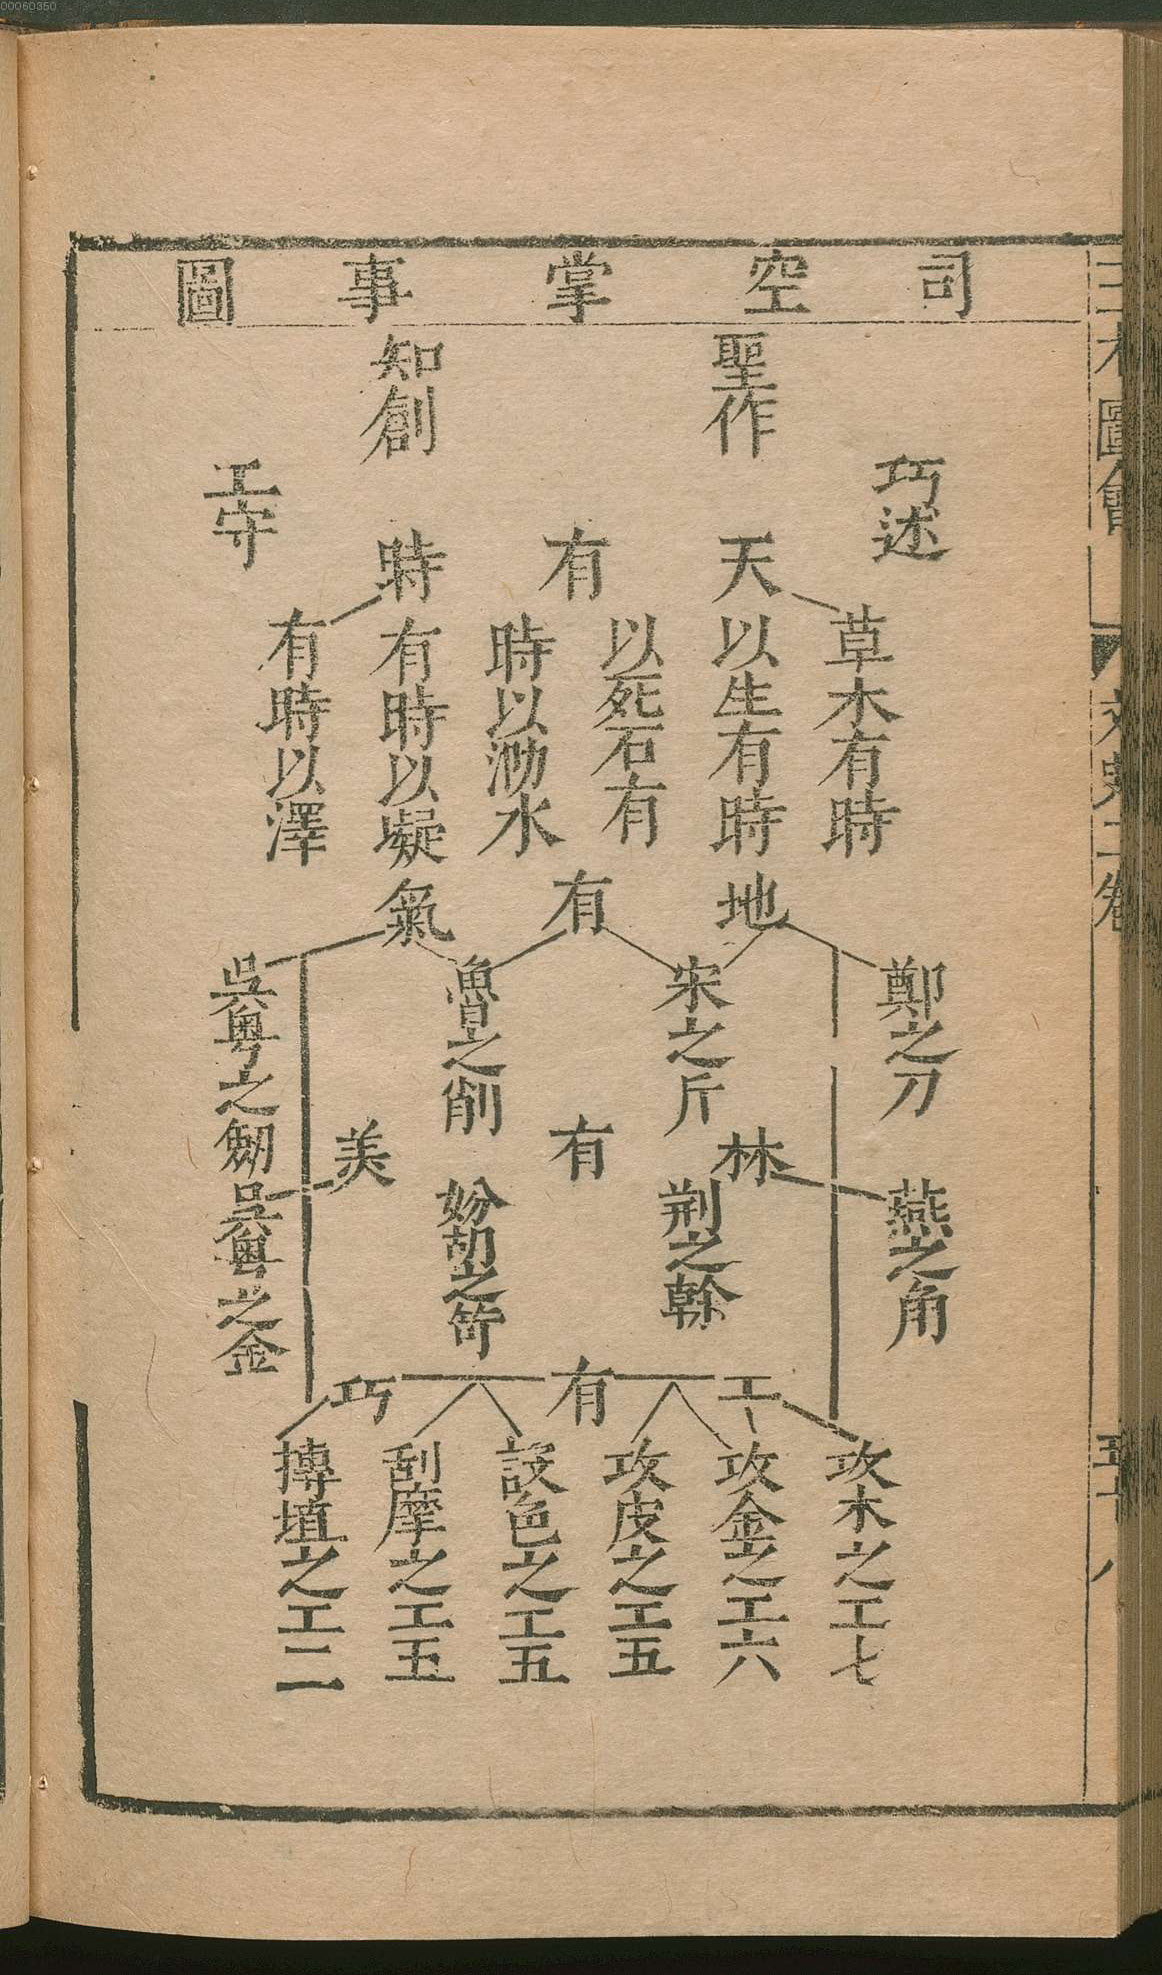 00060350
司空掌事圖
聖作
知創
巧述
工守
天有時
草木有時
以生有時
以死石有
時以泐水
有時以凝
有時以澤
地有氣
鄭之刀
宋之斤
魯之削
吳粵之劒
林有美
燕之角
荆之幹
妢胡之笴
吳粵之金
工有巧
攻木之工七
攻金之工六
攻皮之工五
設色之工五
刮摩之工五
摶埴之工二